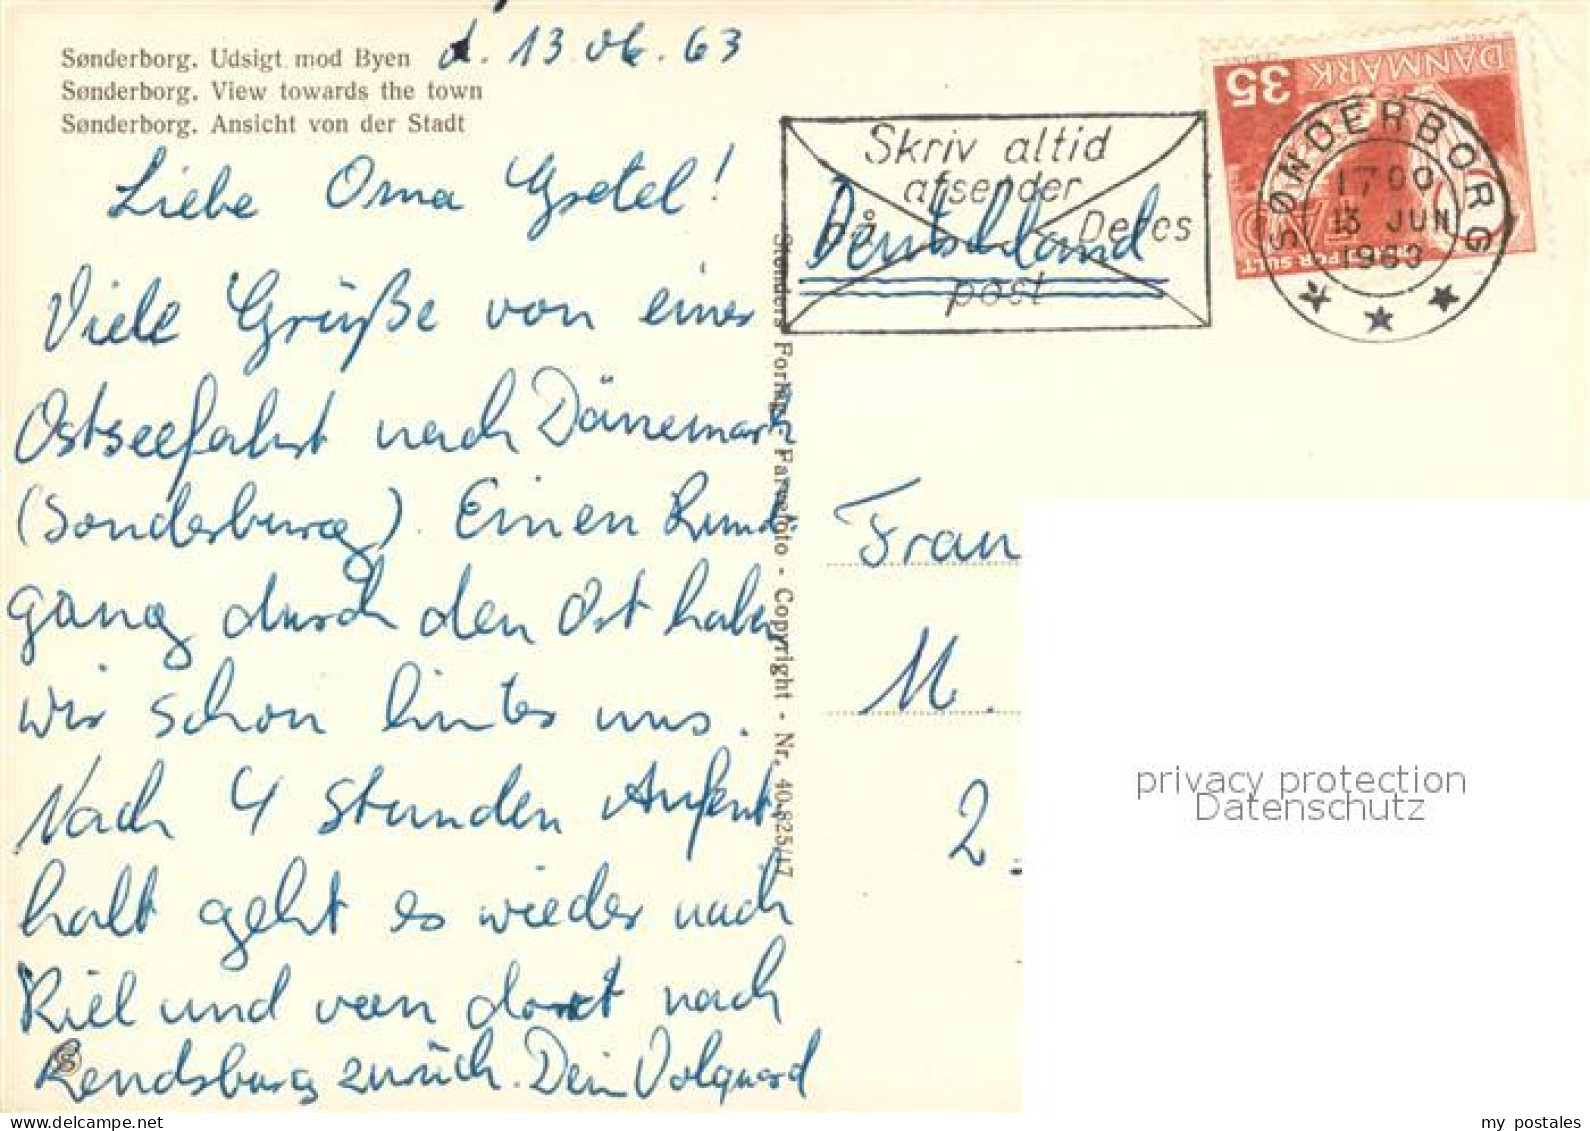 Sønderborg. Udsigt mod Byen
Sønderborg. View towards the town
Sønderborg. Ansicht von der Stadt
d. 13.06.63
Liebe Oma Gretel!
Viele Grüße von einer
Ostseefahrt nach Dänemark
(Sonderburg). Einen Rund
gang durch den Ort haben
wir schon hinter uns.
Nach 4 Stunden Aufent-
halt geht es wieder nach
Kiel und von dort nach
Rendsburg zurück. Dein Volquard
Stenders Forlag. Farvefoto - Copyright - Nr. 40.825/17
Skriv altid
afsender
på Deres
post
Deutschland
DANMARK
35
FAO
FOR SULT
SØNDERBORG
1700
13 JUN
1963
Frau
M.
2.
privacy protection
Datenschutz
www.delcampe.net
my_postales